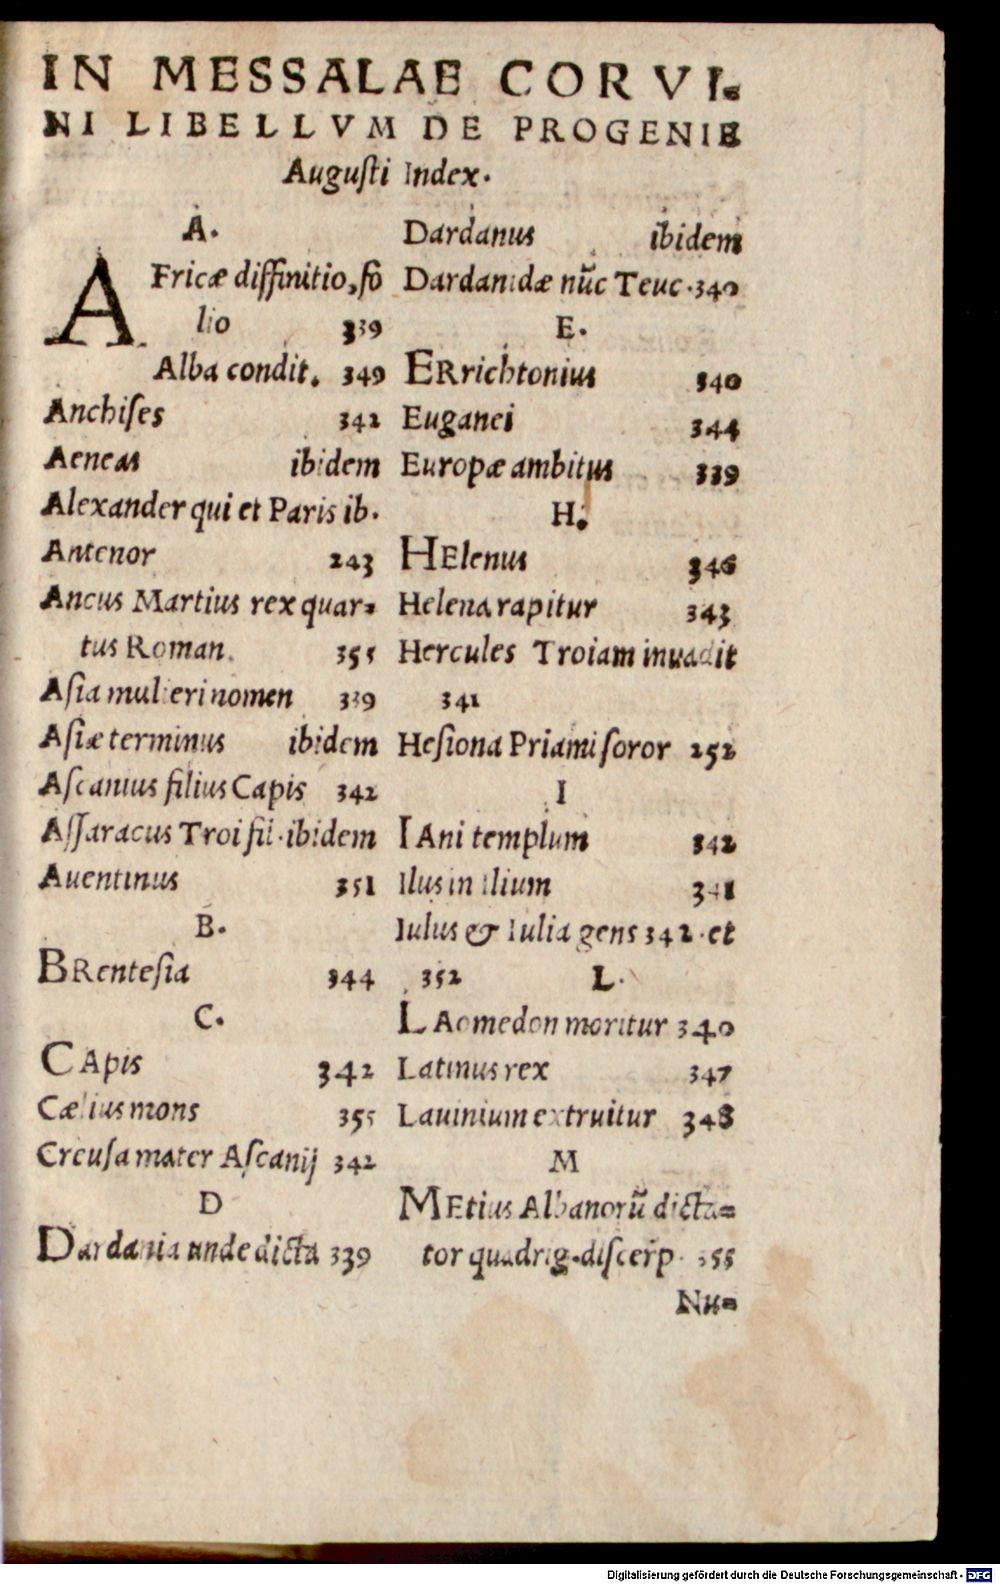 IN MESSALAE CORVI-
NI LIBELLVM DE PROGENIE
Augusti Index.
A.
AFricæ diffinitio, fo
lio 339
Alba condit. 349
Anchises 342
Aeneas ibidem
Alexander qui et Paris ib.
Antenor 243
Ancus Martius rex quar-
tus Roman. 355
Asia mulieri nomen 339
Asiæ terminus ibidem
Ascanius filius Capis 342
Assaracus Troi fil. ibidem
Auentinus 351
B.
BRentesia 344
C.
CApis 342
Cælius mons 355
Creusa mater Ascanij 342
D
Dardania unde dicta 339
Dardanus ibidem
Dardanidæ nũc Teuc. 340
E.
ERrichtonius 340
Euganei 344
Europæ ambitus 339
H.
HElenus 346
Helena rapitur 343
Hercules Troiam inuadit
341
Hesiona Priami soror 252
I
IAni templum 342
Ilus in Ilium 341
Iulus & Iulia gens 342. et
352 L.
LAomedon moritur 340
Latinus rex 347
Lauinium extruitur 348
M
MEtius Albanorũ dicta-
tor quadrig. discerp. 355
Nu-
Digitalisierung gefördert durch die Deutsche Forschungsgemeinschaft - DFG